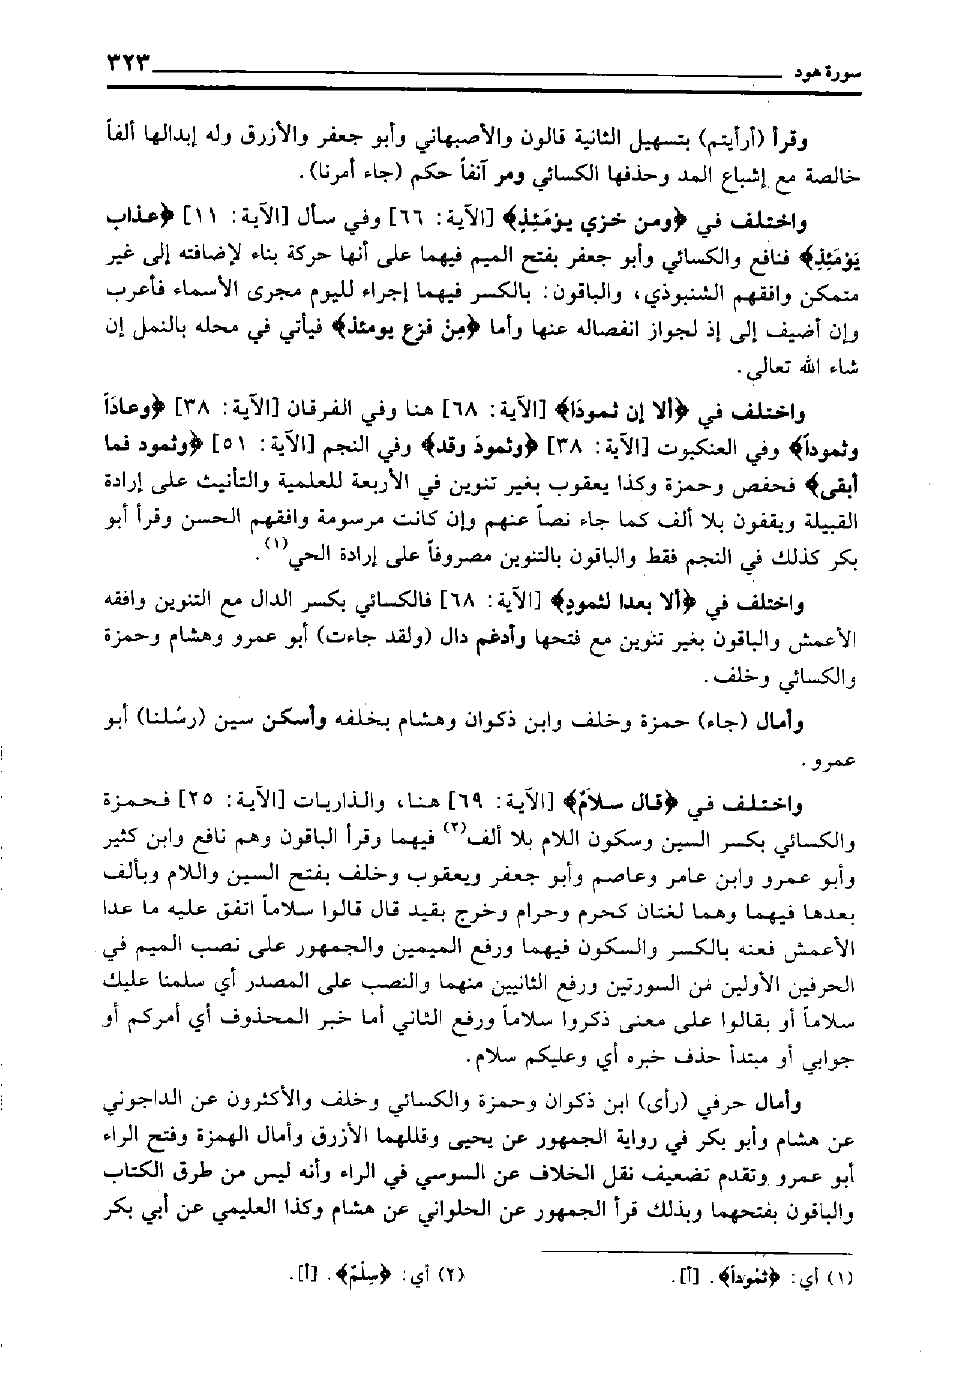 سورة هود ٣٢٣
وقرأ (أرأيتم) بتسهيل الثانية قالون والأصبهاني وأبو جعفر والأزرق وله إبدالها ألفاً
خالصة مع إشباع المد وحذفها الكسائي ومر آنفاً حكم (جاء أمرنا).
واختلف في ﴿ومن خزي يؤمَئِذِ﴾ [الآية: ٦٦] وفي سأل [الآية: ١١] ﴿عذاب
يَوْمَئِذِ﴾ فنافع والكسائي وأبو جعفر بفتح الميم فيهما على أنها حركة بناء لإضافته إلى غير
متمكن وافقهم الشنبوذي، والباقون: بالكسر فيهما إجراء لليوم مجرى الأسماء فأعرب
وإن أضيف إلى إذ لجواز انفصاله عنها وأما ﴿مِنْ فزع يومئذ﴾ فيأتي في محله بالنمل إن
شاء الله تعالى.
واختلف في ﴿ألا إن ثمودَا﴾ [الآية: ٦٨] هنا وفي الفرقان [الآية: ٣٨] ﴿وعاداً
وثموداً﴾ وفي العنكبوت [الآية: ٣٨] ﴿وثمودَ وقد﴾ وفي النجم [الآية: ٥١] ﴿وثمود فما
أبقى﴾ فحفص وحمزة وكذا يعقوب بغير تنوين في الأربعة للعلمية والتأنيث على إرادة
القبيلة ويقفون بلا ألف كما جاء نصاً عنهم وإن كانت مرسومة وافقهم الحسن وقرأ أبو
بكر كذلك في النجم فقط والباقون بالتنوين مصروفاً على إرادة الحي(١).
واختلف في ﴿ألا بعدا لثمودِ﴾ [الآية: ٦٨] فالكسائي بكسر الدال مع التنوين وافقه
الأعمش والباقون بغير تنوين مع فتحها وأدغم دال (ولقد جاءت) أبو عمرو وهشام وحمزة
والكسائي وخلف.
وأمال (جاء) حمزة وخلف وابن ذكوان وهشام بخلفه وأسكن سين (رسْلنا) أبو
عمرو.
واختلف في ﴿قال سلامٌ﴾ [الآية: ٦٩] هنا، والذاريات [الآية: ٢٥] فحمزة
والكسائي بكسر السين وسكون اللام بلا ألف(٢) فيهما وقرأ الباقون وهم نافع وابن كثير
وأبو عمرو وابن عامر وعاصم وأبو جعفر ويعقوب وخلف بفتح السين واللام وبألف
بعدها فيهما وهما لغتان كحرم وحرام وخرج بقيد قال قالوا سلاماً اتفق عليه ما عدا
الأعمش فعنه بالكسر والسكون فيهما ورفع الميمين والجمهور على نصب الميم في
الحرفين الأولين من السورتين ورفع الثانيين منهما والنصب على المصدر أي سلمنا عليك
سلاماً أو بقالوا على معنى ذكروا سلاماً ورفع الثاني أما خبر المحذوف أي أمركم أو
جوابي أو مبتدأ حذف خبره أي وعليكم سلام.
وأمال حرفي (رأى) ابن ذكوان وحمزة والكسائي وخلف والأكثرون عن الداجوني
عن هشام وأبو بكر في رواية الجمهور عن يحيى وقللهما الأزرق وأمال الهمزة وفتح الراء
أبو عمرو وتقدم تضعيف نقل الخلاف عن السوسي في الراء وأنه ليس من طرق الكتاب
والباقون بفتحهما وبذلك قرأ الجمهور عن الحلواني عن هشام وكذا العليمي عن أبي بكر
(١) أي: ﴿ثمُوداً﴾. [أ]. (٢) أي: ﴿سِلْمٌ﴾. [أ].